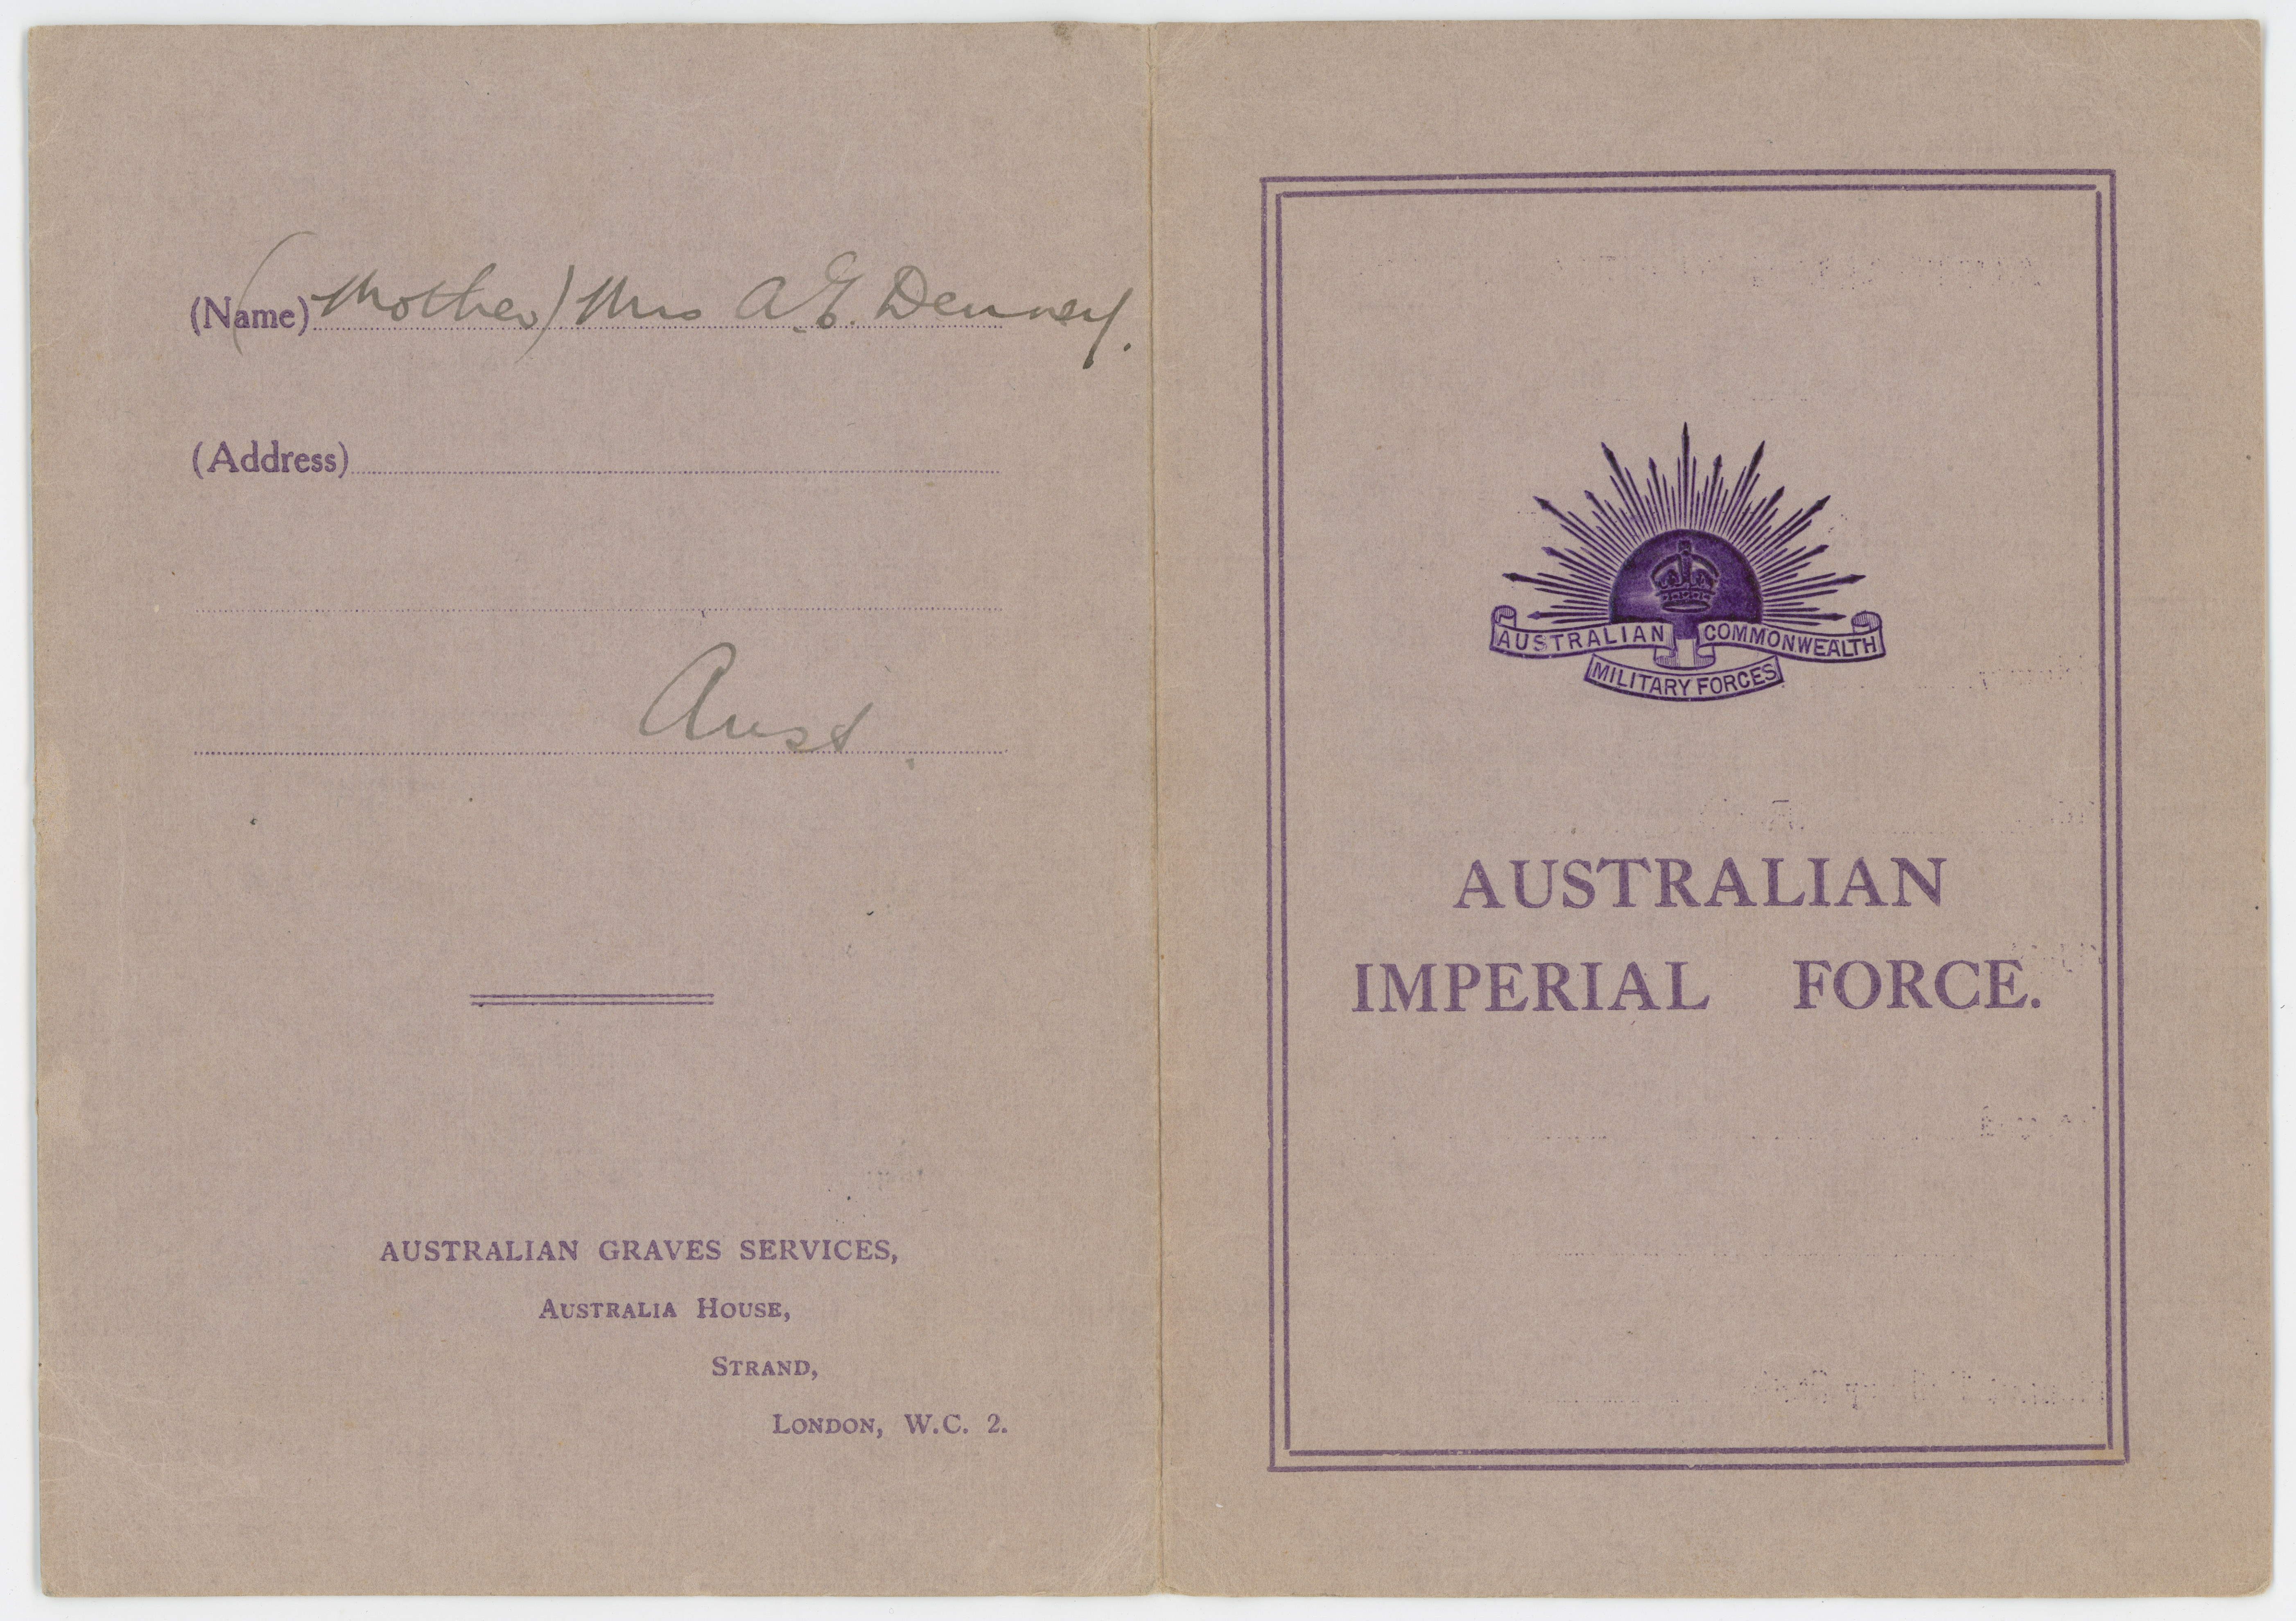 (Name) (Mother) Mrs A.E. Denney.
(Address)
Aust
AUSTRALIAN GRAVES SERVICES,
AUSTRALIA HOUSE,
STRAND,
LONDON, W.C. 2.
AUSTRALIAN COMMONWEALTH
MILITARY FORCES
AUSTRALIAN
IMPERIAL FORCE.